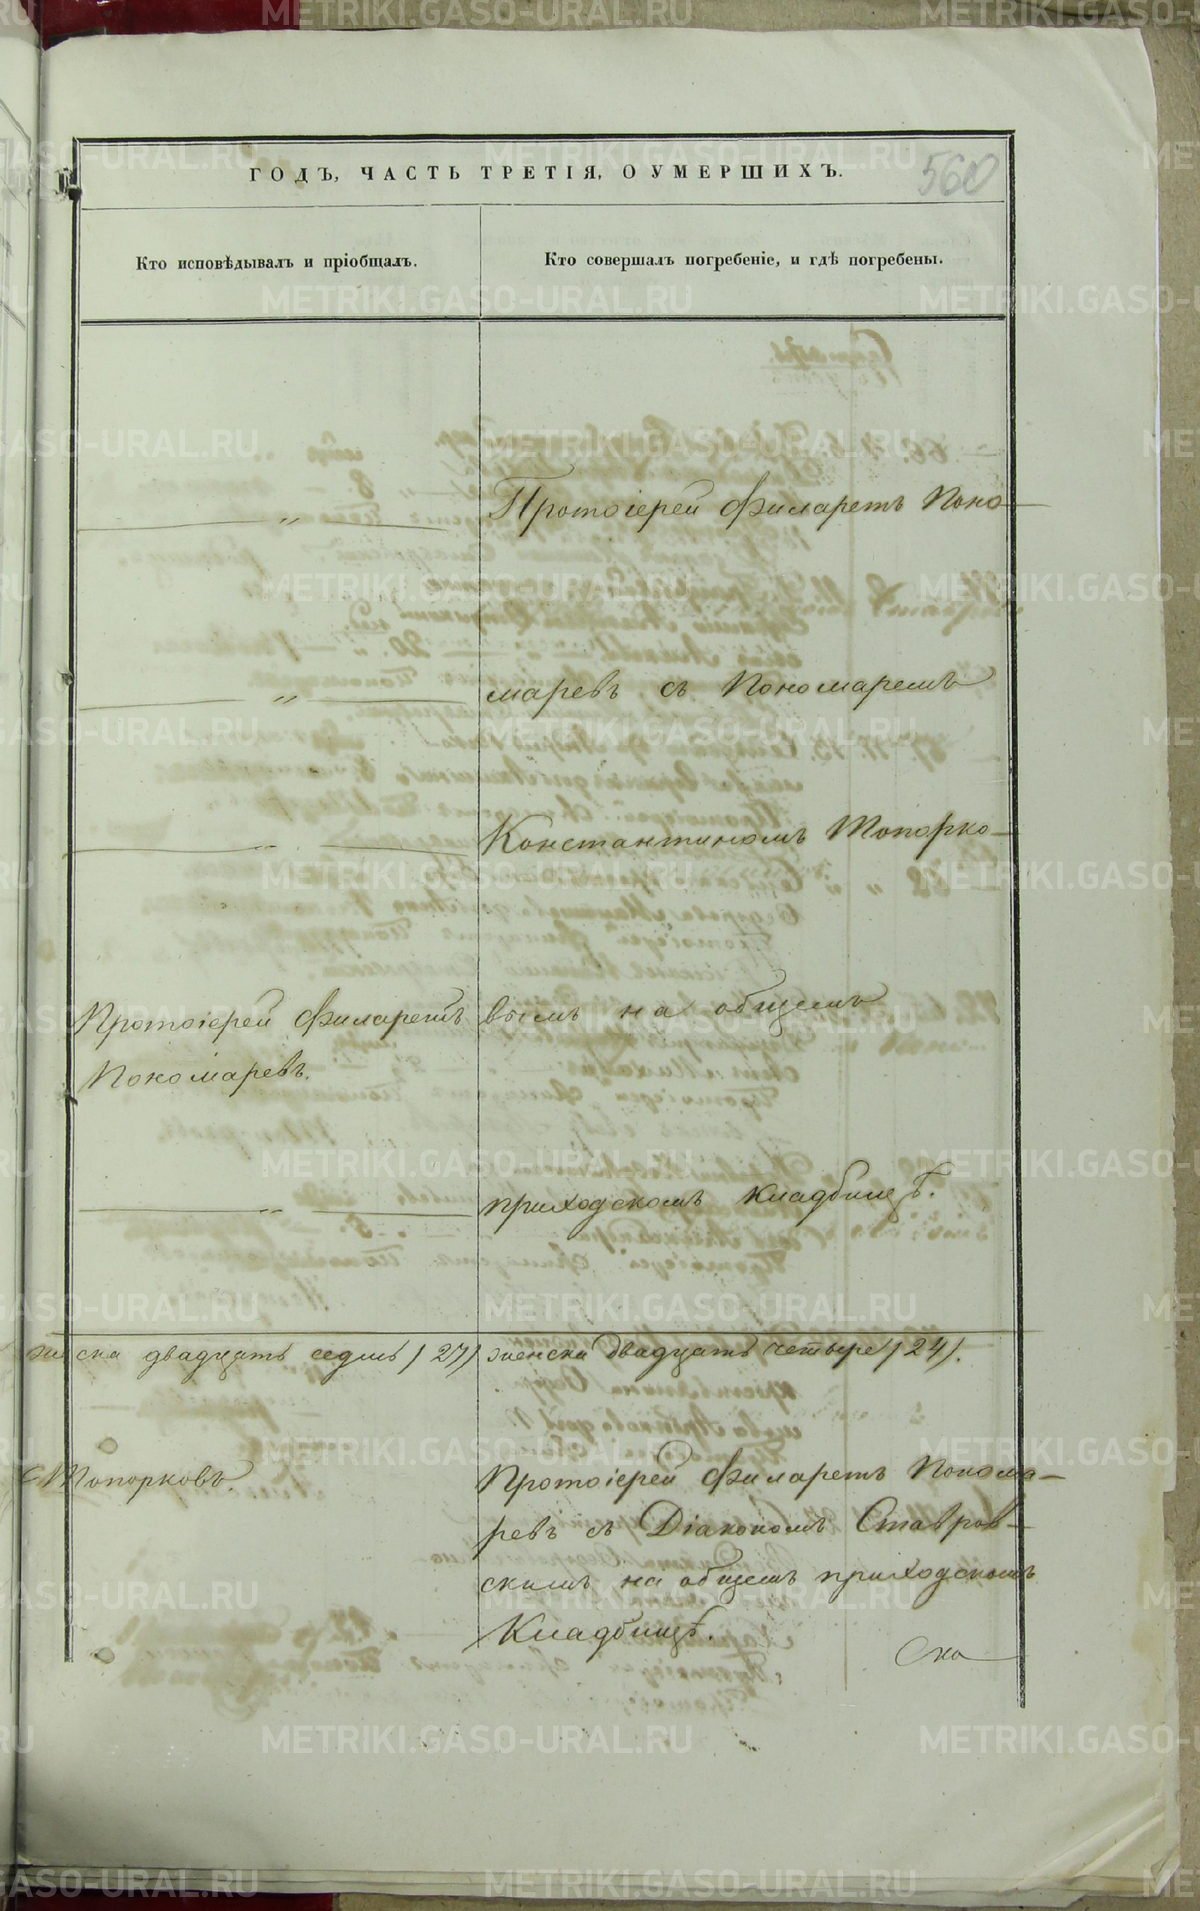 560
ГОДЪ, ЧАСТЬ ТРЕТІЯ, О УМЕРШИХЪ.
Кто исповѣдывалъ и пріобщалъ.
Кто совершалъ погребеніе, и гдѣ погребены.
— „ — Протоіерей Филаретъ Поно-
— „ — маревъ съ Пономаремъ
— „ — Константиномъ Топорко-
Протоіерей Филаретъ
Пономаревъ.
вымъ на общемъ
— „ — приходскомъ кладбищѣ.
ска двадцать седмь /27/ женска двадцать четыре /24/.
Топорковъ.
Протоіерей Филаретъ Понома-
ревъ съ Діакономъ Ставров-
скимъ на общемъ приходскомъ
Кладбищѣ.
Ска
METRIKI.GASO-URAL.RU